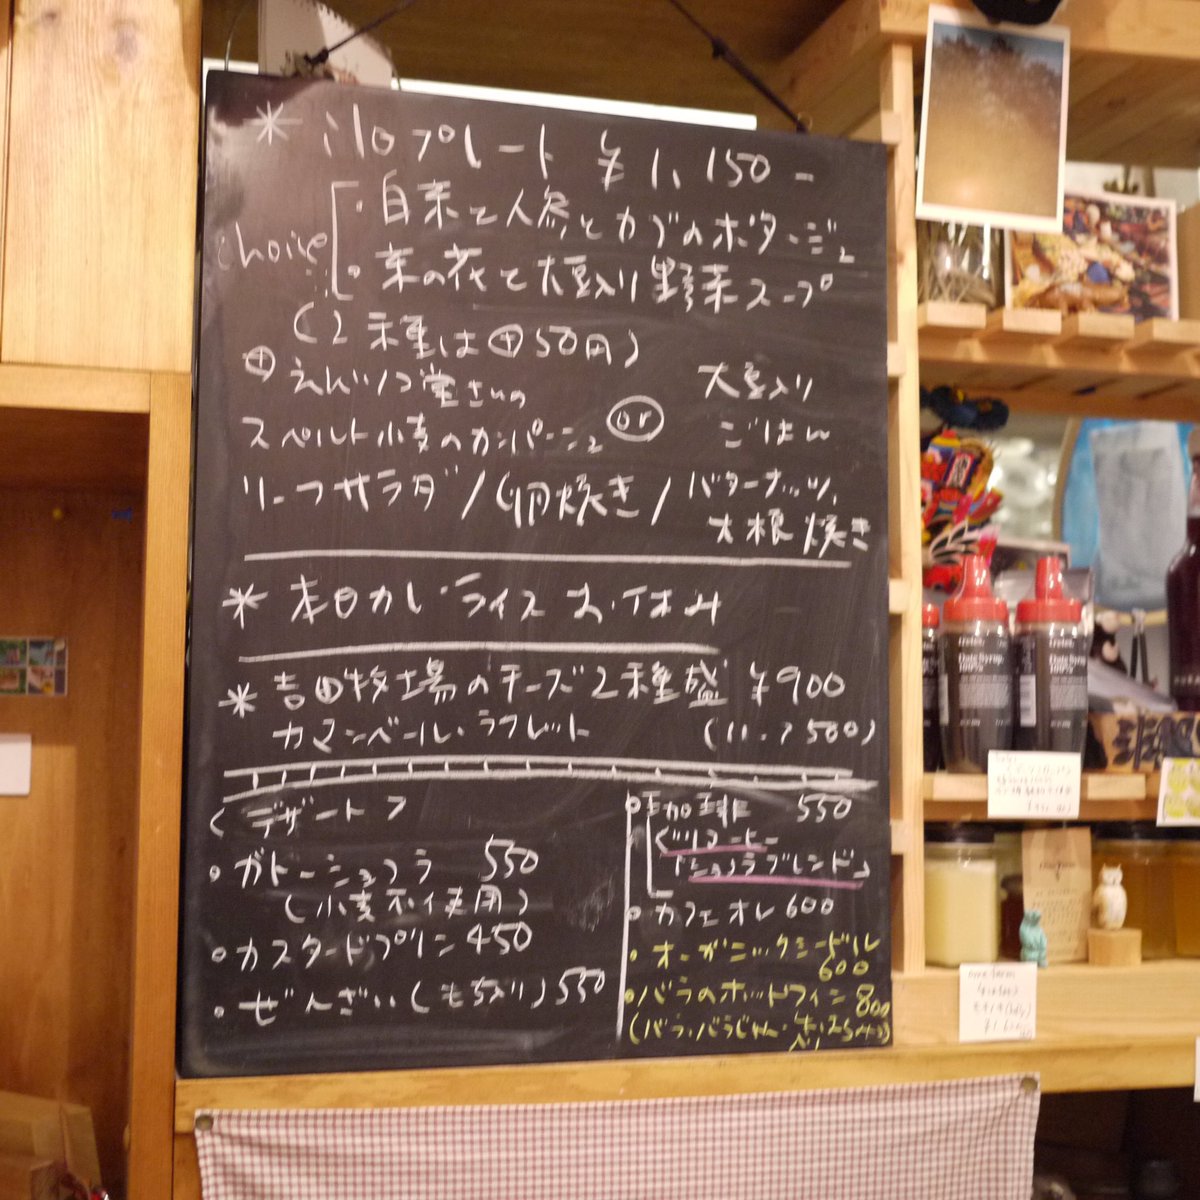 * iloプレート ¥1,150-
choice
・白菜と人参とカブのポタージュ
・菜の花と大豆入り野菜スープ
(2種は⊕50円)
⊕ えんツコ堂さんの
スペルト小麦のカンパーニュ
or
大豆入り
ごはん
リーフサラダ/卵焼き/バターナッツ、
大根焼き
* 本日カレーライス お休み
* 吉田牧場のチーズ2種盛 ¥900
カマンベール・ラクレット
(ハーフ500)
(デザート)
・ガトーショコラ 550
(小麦不使用)
・カスタードプリン 450
・ぜんざい(もち入り) 550
・珈琲 550
・カフェオレ 600
・オーガニックシードル
600
・バラのホットワイン 800